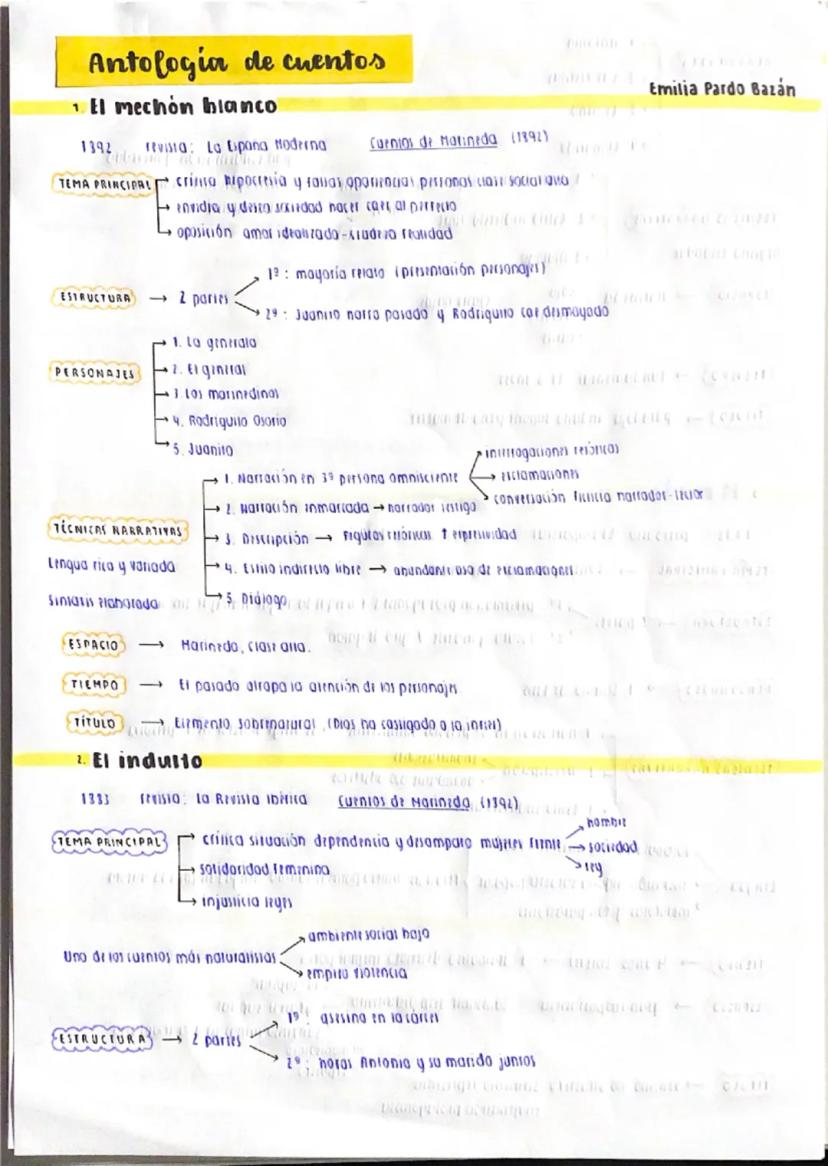 Antología de cuentos
Emilia Pardo Bazán
1. El mechón blanco
1892 revista: La España Moderna Cuentos de Marineda (1892)
TEMA PRINCIPAL → crítica hipocresía y falsas apariencias personas clase social alta
→ envidia y deseo sociedad hacer caer al perfecto
→ oposición amor idealizado - cruda realidad
ESTRUCTURA → 2 partes
1ª: mayoría relato (presentación personajes)
2ª: Juanito narra pasado y Rodriguito cae desmayado
PERSONAJES
→ 1. La generala
→ 2. El general
→ 3. Los marinedinos
→ 4. Rodriguito Osorio
→ 5. Juanito
TÉCNICAS NARRATIVAS
Lengua rica y variada
Sintaxis elaborada
→ 1. Narración en 3ª persona omnisciente
→ interrogaciones retóricas
→ exclamaciones
→ conversación ficticia narrador-lector
→ 2. Narración enmarcada → narrador testigo
→ 3. Descripción → Figuras retóricas ↑ expresividad
→ 4. Estilo indirecto libre → abundante uso de exclamaciones
→ 5. Diálogo
ESPACIO → Marineda, clase alta.
TIEMPO → El pasado atrapa la atención de los personajes.
TÍTULO → Elemento sobrenatural. (Dios ha castigado a la infiel)
2. El indulto
1883 revista: La Revista Ibérica Cuentos de Marineda (1892)
TEMA PRINCIPAL → crítica situación dependencia y desamparo mujeres frente
→ hombre
→ sociedad
→ ley
→ solidaridad femenina
→ injusticia leyes
Uno de los cuentos más naturalistas
→ ambiente social bajo
→ empleo violencia
ESTRUCTURA → 2 partes
1ª asesino en la cárcel
2ª: horas Antonia y su marido juntos